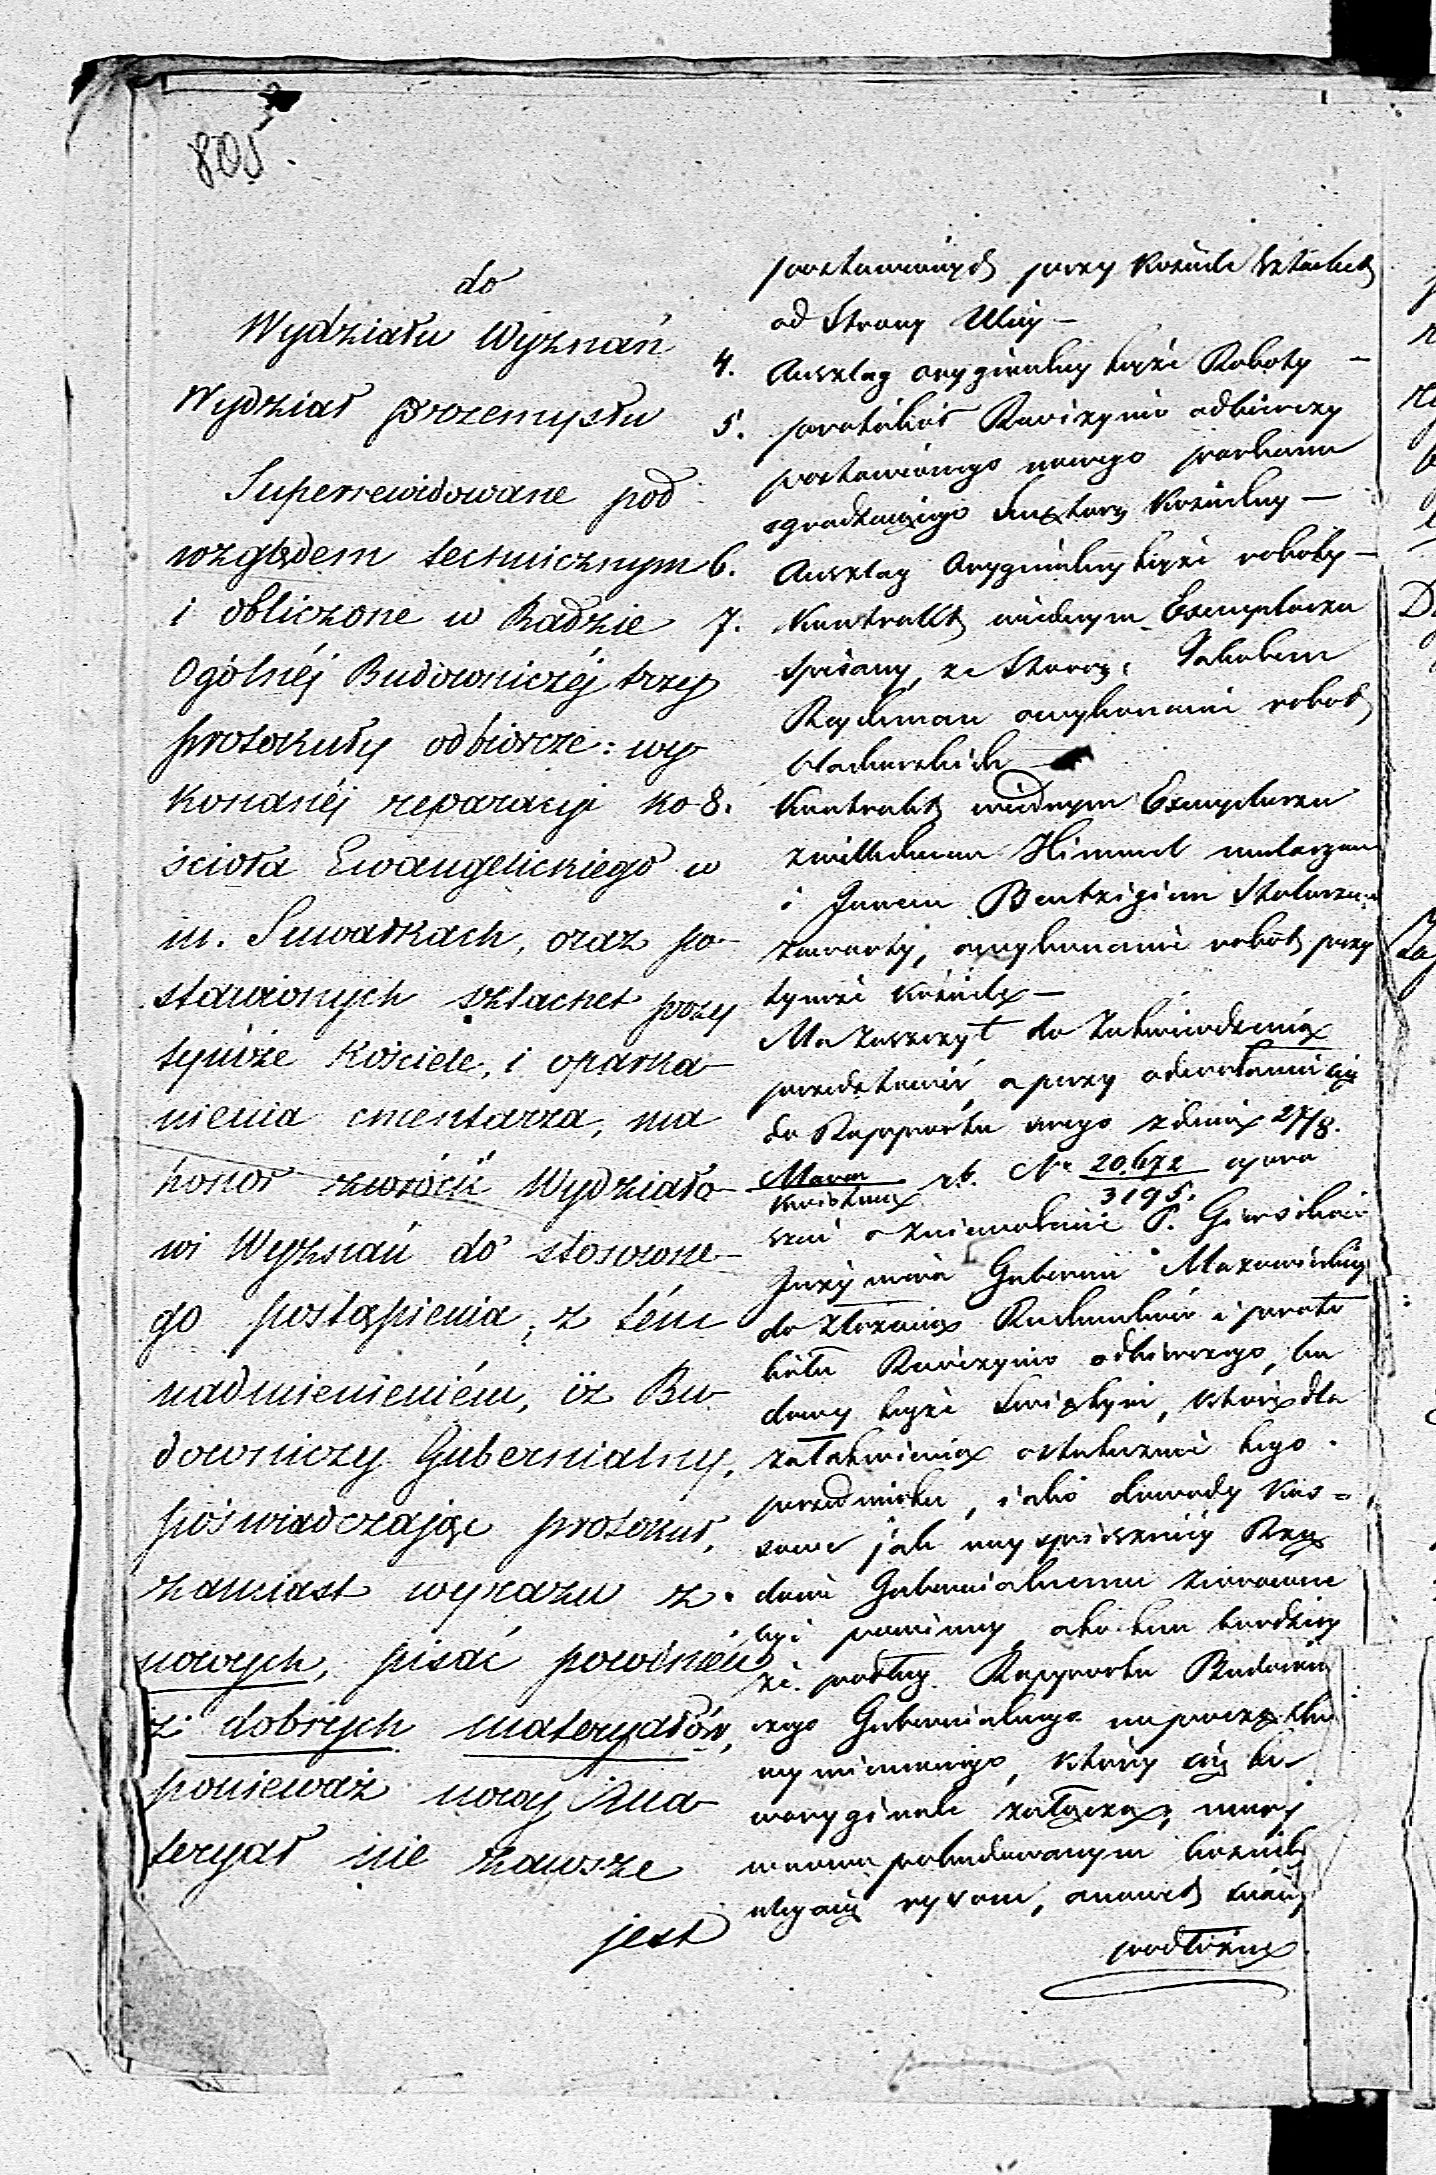 805
do
Wydziału Wyznań
Wydział przemysłu
Superrewidowane pod
względem technicznym
i obliczone w Radzie
Ogólnéj Budowniczéj trzy
protokuły odbiorcze: wy-
konanéj reparacyi ko-
ścioła Ewangelickiego w
m. Suwałkach, oraz po-
stawionych sztachet przy
tymże Kościele, i oparka-
nienia cmentarza, ma
honor zwrócić Wydziało-
wi Wyznań do stosowne-
go postąpienia; z tém
nadmienieniém, iż Bu-
downiczy Gubernialny,
poświadczając protokuł,
zamiast wyrazu z
nowych, pisać powinién
z dobrych materyałów,
ponieważ nowy ma-
teryał nie zawsze
jest
postawionych przy Kościele Sztachet
od Strony Ulicy –
4. Anszlag oryginalny teyże Roboty –
5. protókół Rewizyino odbiorczy
postawionego nowego parkanu
ogradzaiącego Cmętarz Kościelny –
6. Anszlag Oryginalny teyże roboty –
7. Kontrakt wiednym Exemplarzu
spisany, ze Staroz: Jakubem
o wykonanie robot
blacharskich –
8. Kontrakt wiednym Exemplarzu
z Wilhelmem Himmel malarzem
i Janem Stolarzem
zawarty, o wykonanie robot przy
tymże Kościele –
Ma zaszczyt do Zatwierdzenia
przedstawić, a przy odwołaniu się
do Rapportu swego z dnia 27/8.
Marca
Kwietnia r.b. Nr 20,672
3195.
Guberni Mazowieckiey
do złożenia Rachunków i proto-
kółu Rewizyino odbiorczego, bu-
dowy teyże Świątyni, które dla
załatwienia ostatecznie tego
przedmiotu, iako dowody Kas-
sowe jak nayspieszniéy Rzą-
dowi Gubernialnemu zwrócone
być powinny, oto tem bardziey
że podług Rapportu Budowni-
czego Gubernialnego na początku
wymienionego, który się tu
w oryginale załącza, mury
w nowo pobudowanym Kościele
ulegaią rysom, a nawet
podłóżne